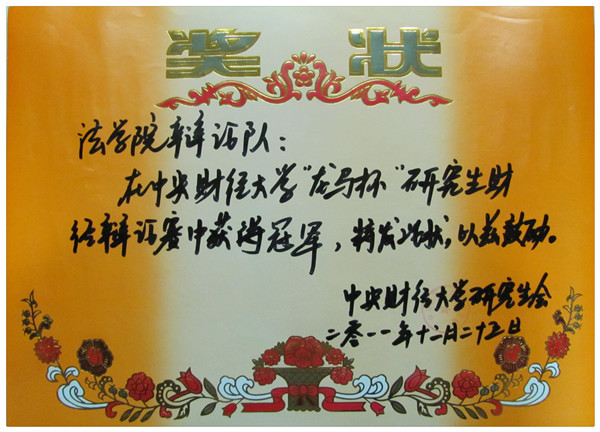 奖状
法学院辩论队：
在中央财经大学“龙马杯”研究生财
经辩论赛中获得冠军，特发此状，以兹鼓励。
中央财经大学研究生会
二零一一年十二月二十五日